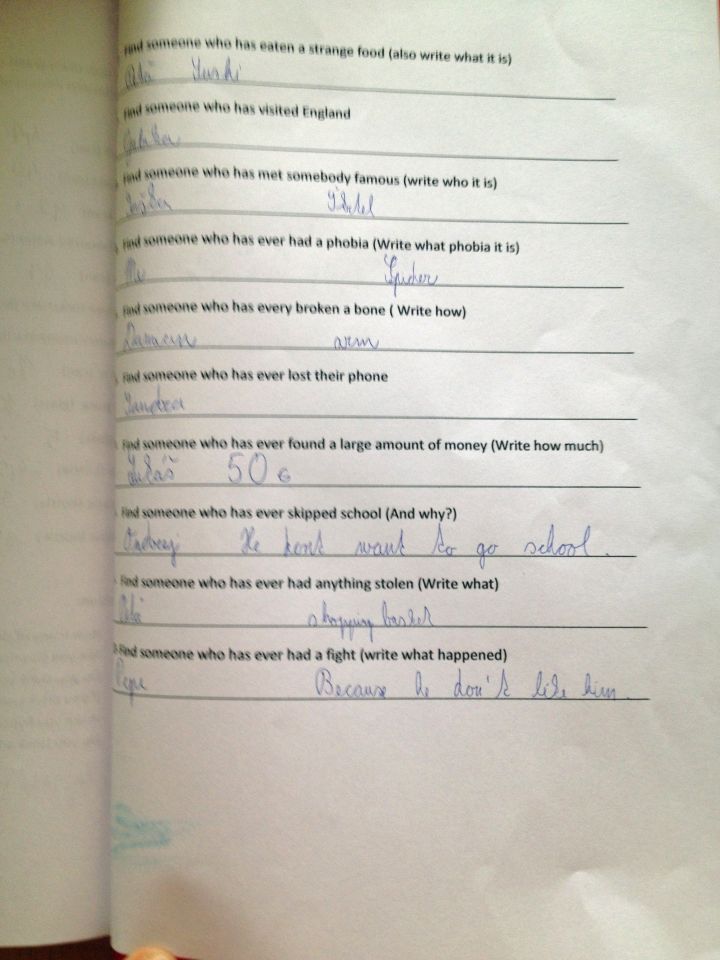 Find someone who has eaten a strange food (also write what it is)
Find someone who has visited England
Find someone who has met somebody famous (write who it is)
Find someone who has ever had a phobia (Write what phobia it is)
Me Spider
Find someone who has every broken a bone ( Write how)
Damian arm
Find someone who has ever lost their phone
Find someone who has ever found a large amount of money (Write how much)
Lukáš 50 €
Find someone who has ever skipped school (And why?)
Ondreej He want to go school.
Find someone who has ever had anything stolen (Write what)
shopping basket
Find someone who has ever had a fight (write what happened)
Pepe Because he don't like him.